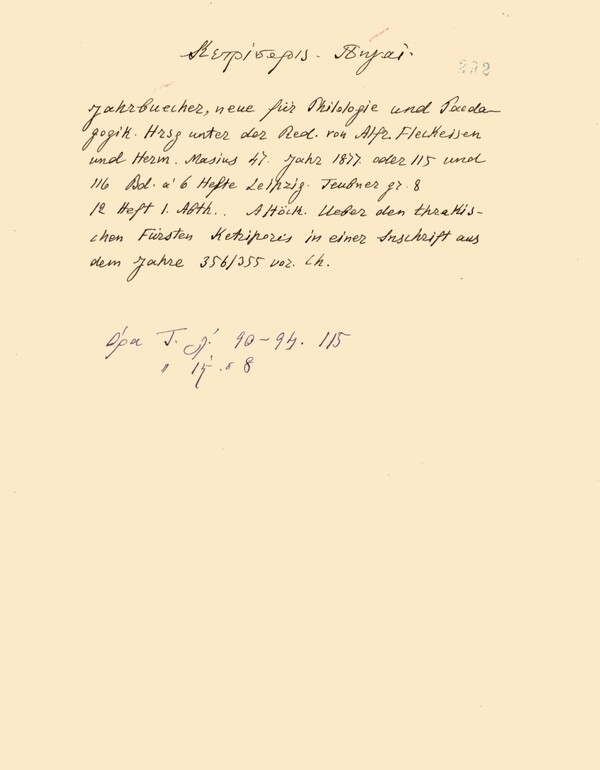 Κετρίπορις - Πηγαί.
232
Jahrbuecher, neue für Philologie und Paeda-
gogik. Hrsg unter der Red. von Alfr. Fleckeisen
und Herm. Masius 47. Jahr 1877. oder 115 und
116 Bd. a' 6 Hefte Leipzig. Teubner gr. 8
12 Heft 1. Abth.. A Höck. Ueber den thrakis-
chen Fürsten Ketriporis in einer Inschrift aus
dem Jahre 356/355 vor. Ch.
Όρα Τ. 90-94. 115
" 8